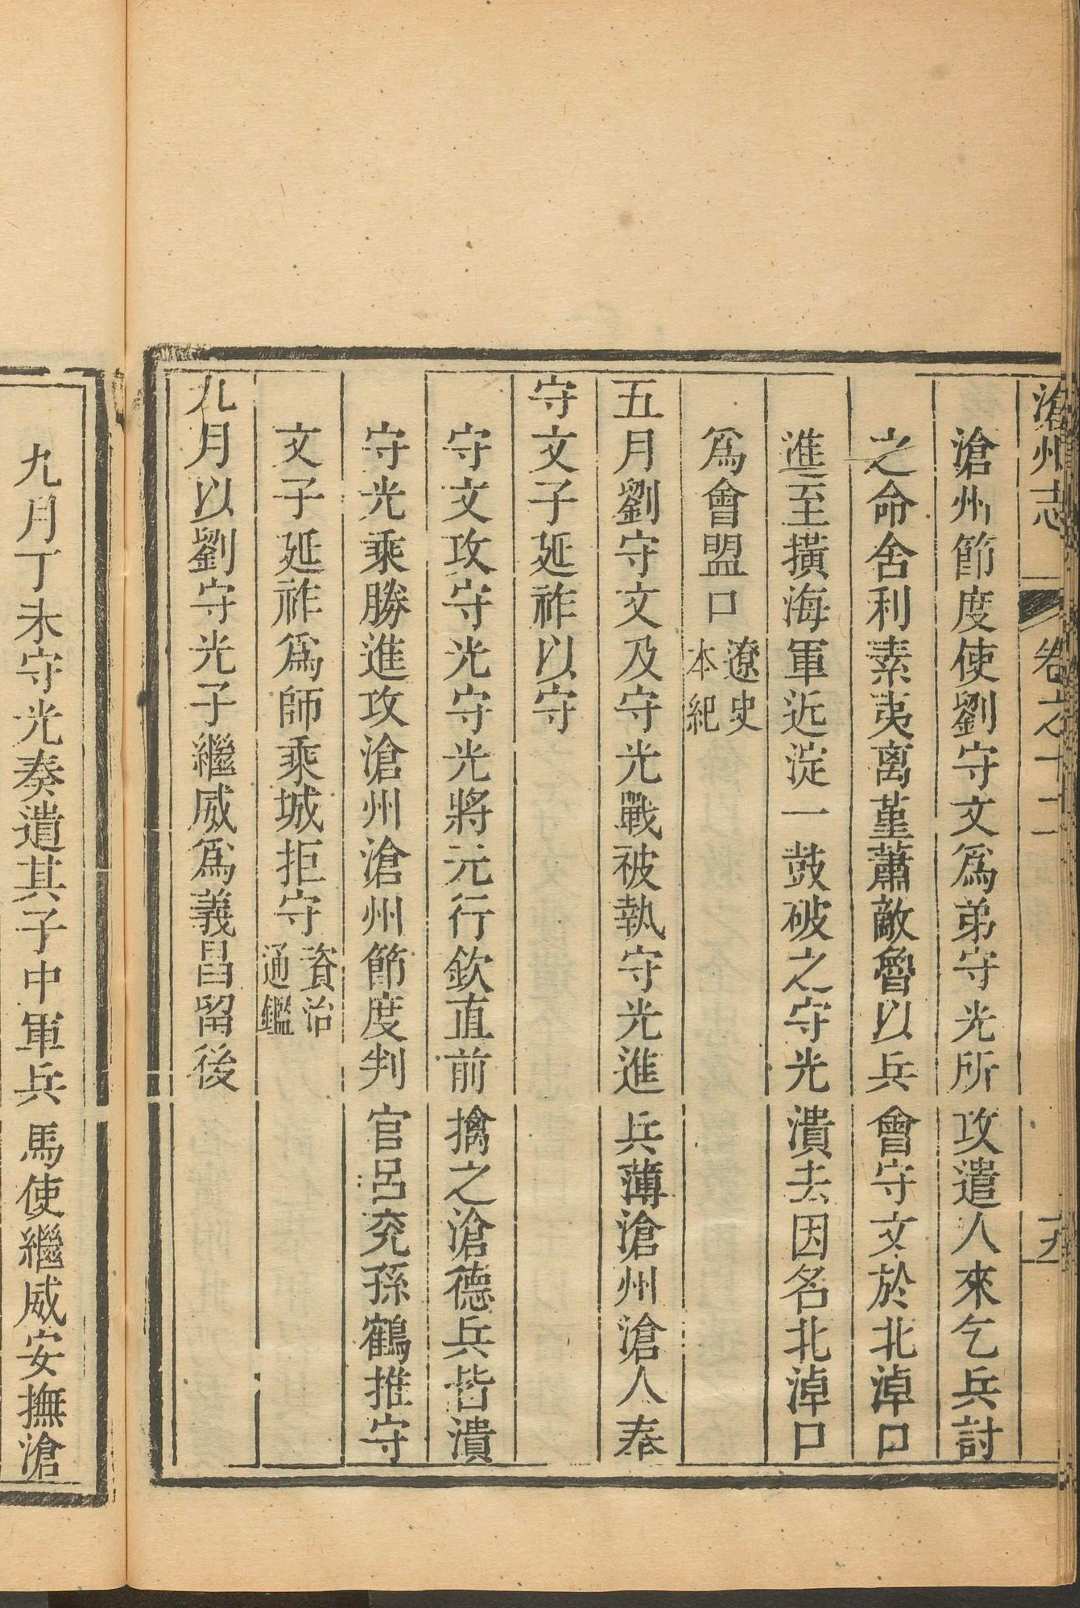 滄州志 卷之十二 十九
滄州節度使劉守文爲弟守光所攻遣人來乞兵討
之命舍利素夷离堇蕭敵魯以兵會守文於北淖口
進至橫海軍近淀一鼓破之守光潰去因名北淖口
爲會盟口遼史本紀
五月劉守文及守光戰被執守光進兵薄滄州滄人奉
守文子延祚以守
守文攻守光守光將元行欽直前擒之滄德兵皆潰
守光乘勝進攻滄州滄州節度判官呂兖孫鶴推守
文子延祚爲師乘城拒守資治通鑑
九月以劉守光子繼威爲義昌留後
九月丁未守光奏遣其子中軍兵馬使繼威安撫滄